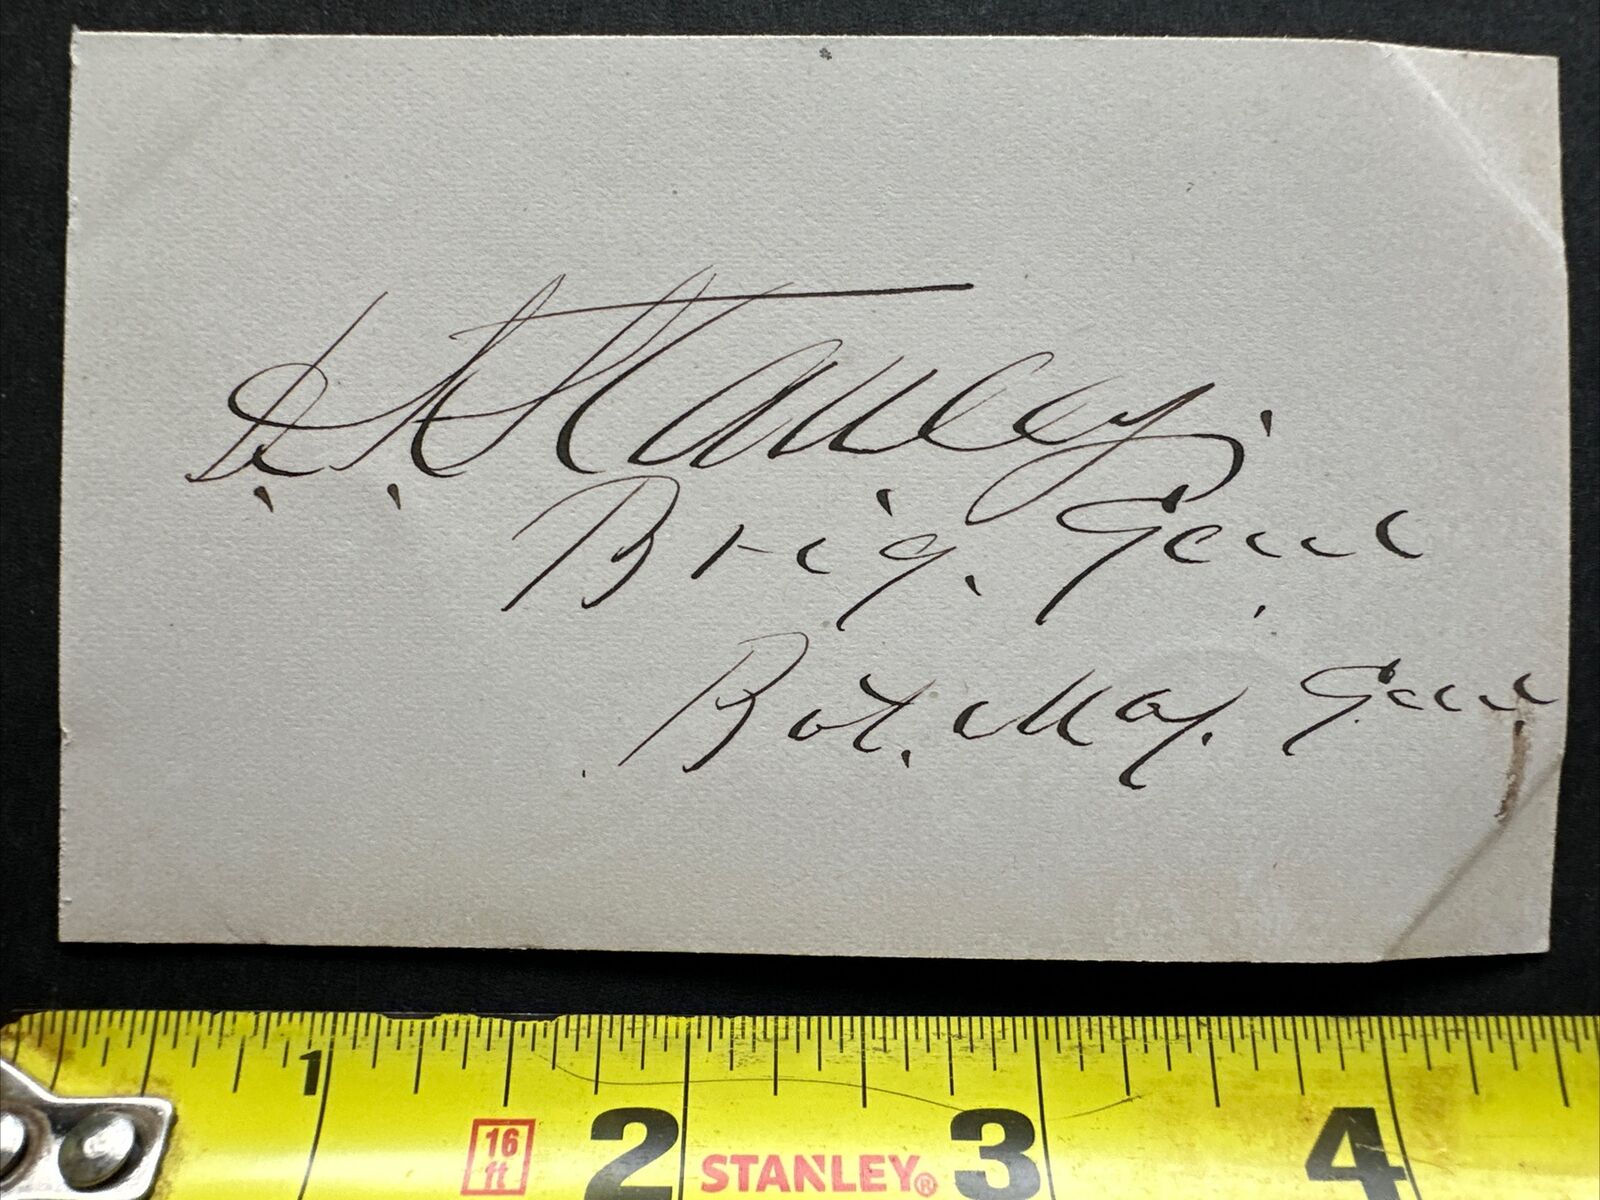 D. S. Stanley.
Brig. Genl
Bvt. Maj. Genl
1 2 3 4
16
ft
STANLEY®